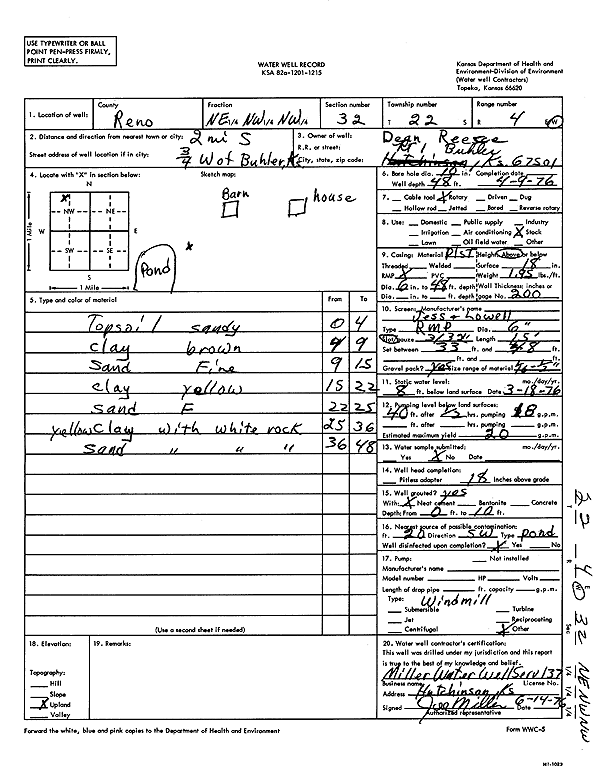 USE TYPEWRITER OR BALL
POINT PEN-PRESS FIRMLY,
PRINT CLEARLY.
WATER WELL RECORD
KSA 82a-1201-1215
Kansas Department of Health and
Environment-Division of Environment
(Water well Contractors)
Topeka, Kansas 66620
1. Location of well: County Reno Fraction NE 1/4 NW 1/4 NW 1/4 Section number 32 Township number T 22 S Range number R 4 E/W
2. Distance and direction from nearest town or city: 2 mi S
Street address of well location if in city: 3/4 W of Buhler, Ks
3. Owner of well: Dean Reese
R.R. or street: Rt 1 Buhler
City, state, zip code: Hutchinson, Ks. 67501
4. Locate with "X" in section below:
Sketch map:
N
X
NW NE
W E
SW SE
S
1 Mile
1 Mile
Barn
house
x
Pond
6. Bore hole dia. 10 in. Completion date
Well depth 48 ft. 4-9-76
7. Cable tool X Rotary Driven Dug
Hollow rod Jetted Bored Reverse rotary
8. Use: Domestic Public supply Industry
Irrigation Air conditioning X Stock
Lawn Oil field water Other
9. Casing: Material Plst Height: Above or below
Threaded Welded Surface 18 in.
RMP X PVC Weight 1.95 lbs./ft.
Dia. 6 in. to 48 ft. depth Wall Thickness: inches or
Dia. in. to ft. depth gage No. 200
5. Type and color of material From To
Topsoil sandy 0 4
clay brown 4 9
sand Fine 9 15
clay yellow 15 22
sand F 22 25
yellow clay with white rock 25 36
sand " " " 36 48
(Use a second sheet if needed)
10. Screen: Manufacturer's name
Jess + Lowell
Type RMP Dia. 6"
Slot/gauze 3/32" Length 15'
Set between 33 ft. and 48 ft.
ft. and ft.
Gravel pack? yes Size range of material
11. Static water level: mo./day/yr.
8 ft. below land surface Date 3-18-76
12. Pumping level below land surfaces:
40 ft. after 1/2 hrs. pumping 18 g.p.m.
ft. after hrs. pumping g.p.m.
Estimated maximum yield 20 g.p.m.
13. Water sample submitted: mo./day/yr.
Yes X No Date
14. Well head completion:
Pitless adapter 18 Inches above grade
15. Well grouted? yes
With: X Neat cement Bentonite Concrete
Depth: From 0 ft. to 10 ft.
16. Nearest source of possible contamination:
ft. 20 Direction SW Type Pond
Well disinfected upon completion? X Yes No
17. Pump: Not installed
Manufacturer's name
Model number HP Volts
Length of drop pipe ft. capacity g.p.m.
Type: Windmill
Submersible Turbine
Jet Reciprocating
Centrifugal X Other
18. Elevation:
Topography:
Hill
Slope
X Upland
Valley
19. Remarks:
20. Water well contractor's certification:
This well was drilled under my jurisdiction and this report
is true to the best of my knowledge and belief.
Miller Water Well Serv 137
Business name License No.
Address Hutchinson, Ks
Signed Miller Date 6-14-76
Authorized representative
Forward the white, blue and pink copies to the Department of Health and Environment
Form WWC-5
22 - 4 W 32 NE NW NW
T R Sec 1/4 1/4 1/4